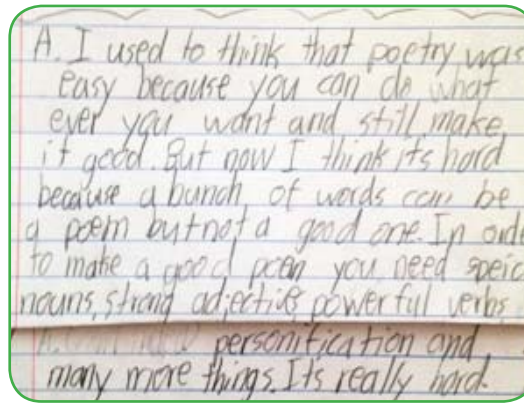 A. I used to think that poetry was
easy because you can do what
ever you want and still make
it good. But now I think its hard
because a bunch of words can be
a poem but not a good one. In orde
to make a good poem you need speic
nouns, strong adjectives, powerful verbs,
personification and
many more things. Its really hard.